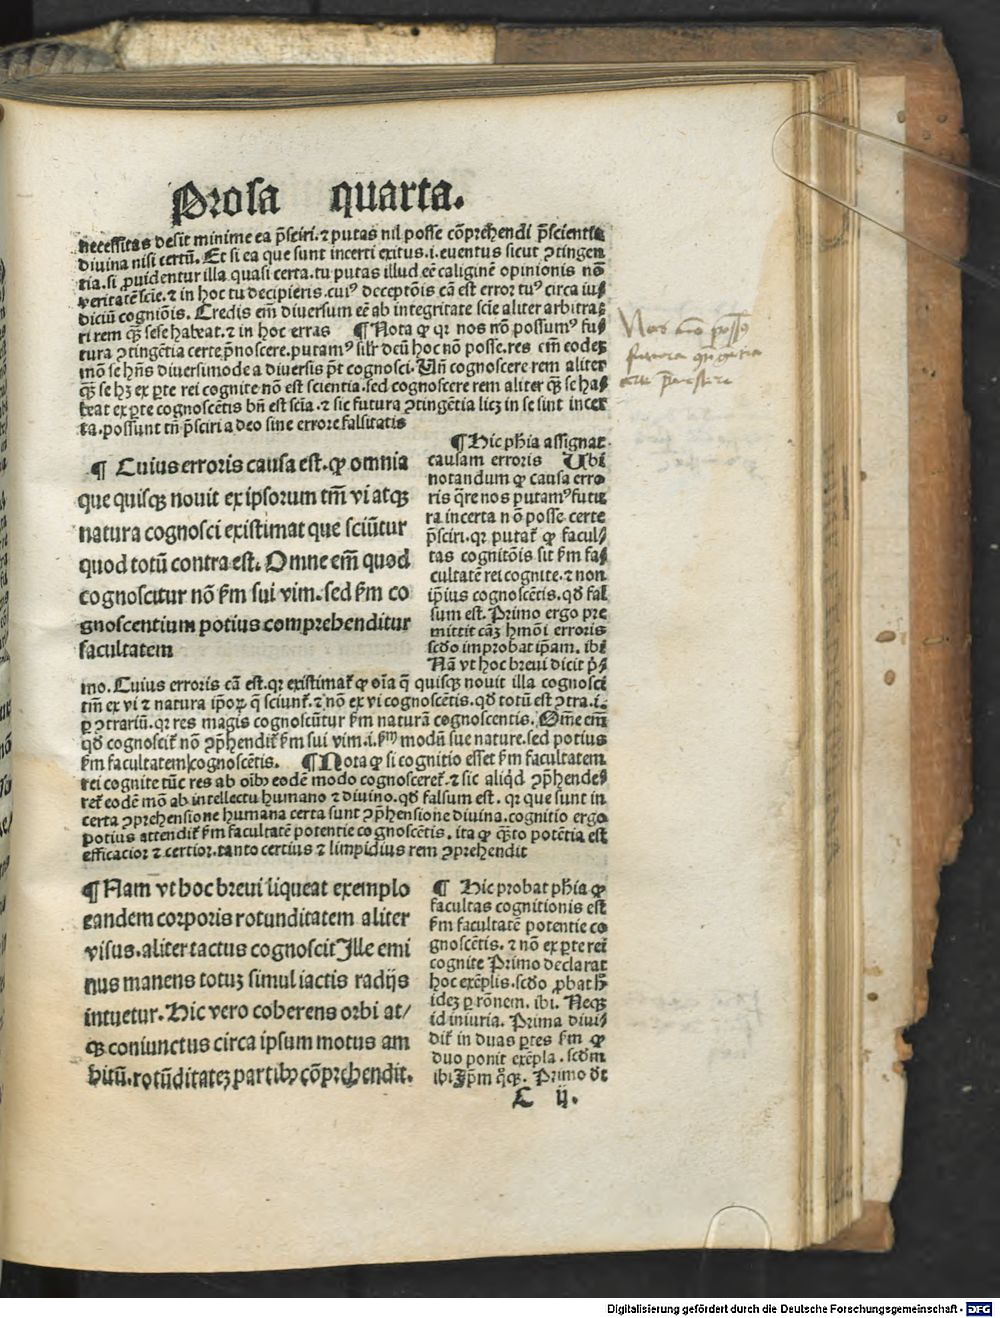 Prosa quarta.
necessitas desit minime ea p̄sciri.⁊ putas nil posse cōprehendi p̄scientia
diuina nisi certū. Et si ea que sunt incerti exitus.i.euentus sicut ↄtingen
tia.si ꝓuidentur illa quasi certa.tu putas illud eē caliginē opinionis nō
veritatē scīe.⁊ in hoc tu deciperis.cuiꝰ deceptōis cā est error tuꝰ circa iu⸗
diciū cogniōis. Credis em̄ diuersum eē ab integritate scīe aliter arbitra⸗
ri rem qȝ̄ sese habeat.⁊ in hoc erras ¶Nota ꝙ qꝛ nos nō possumꝰ fu⸗
tura ↄtingētia certe p̄noscere.putamꝰ silr̄ deū hoc nō posse.res em̄ eodeȝ
mō se hn̄s diuersimode a diuersis pōt cognosci.Vn̄ cognoscere rem aliter
qȝ̄ se hȝ ex ꝑte rei cognite nō est scientia.sed cognoscere rem aliter qȝ̄ se ha⸗
beat ex ꝑte cognoscētis bn̄ est scīa.⁊ sic futura ↄtingētia licȝ in se sint incer
ta.possunt tn̄ p̄sciri a deo sine errore falsitatis
¶ Cuius erroris causa est.ꝙ omnia
que quisqȝ nouit ex ipsorum tm̄ vi atqȝ
natura cognosci existimat que sciūtur
quod totū contra est. Omne em̄ quod
cognoscitur nō ẜm sui vim.sed ẜm co
gnoscentium potius comprehenditur
facultatem
¶Hic ph̄ia assignat
causam erroris Ubi
notandum ꝙ causa erro
ris q̄re nos putamꝰ futu
ra incerta nō posse certe
p̄sciri.qꝛ putat̄ ꝙ facul⸗
tas cognitōis sit ẜm fa⸗
cultatē rei cognite.⁊ non
ip̄ius cognoscētis.qd̄ fal
sum est. Primo ergo pre
mittit cāȝ hmōi erroris
scd̄o improbat ip̄am. ibi
Nā vt hoc breui dicit p̄⸗
mo. Cuius erroris cā est.qꝛ existimat̄ ꝙ oīa q̄ quisqȝ nouit illa cognosci
tm̄ ex vi ⁊ natura ip̄oꝝ q̄ sciunt̄.⁊ nō ex vi cognoscētis.qd̄ totū est ↄtra.i.
ꝑ ↄtrariū.qꝛ res magis cognoscūtur ẜm naturā cognoscentis. Om̄e em̄
qd̄ cognoscit̄ nō ↄp̄hendit̄ ẜm sui vim.i.ẜm modū sue nature.sed potius
ẜm facultatem cognoscētis. ¶Nota ꝙ si cognitio esset ẜm facultatem
rei cognite tūc res ab oībꝰ eodē modo cognosceret̄.⁊ sic aliqd̄ ↄp̄hende⸗
ret̄ eodē mō ab intellectu humano ⁊ diuino.qd̄ falsum est. qꝛ que sunt in
certa ↄprehensione humana certa sunt ↄp̄hensione diuina.cognitio ergo
potius attendit̄ ẜm facultatē potentie cognoscētis. ita ꝙ qȝ̄to potētia est
efficacior ⁊ certior.tanto certius ⁊ limpidius rem ↄprehendit
¶Nam vt hoc breui liqueat exemplo
eandem corporis rotunditatem aliter
visus.aliter tactus cognoscit Ille emi
nus manens totuȝ simul iactis radijs
intuetur. Hic vero coherens orbi at/
qȝ coniunctus circa ipsum motus am
bitū.rotūditateȝ partibꝰ cōprehendit.
¶ Hic probat ph̄ia ꝙ
facultas cognitionis est
ẜm facultatem potentie co
gnoscētis. ⁊ nō ex ꝑte rei
cognite Primo declarat
hoc exēplis.scd̄o ꝓbat h̄
ideȝ ꝑ rōnem. ibi. Neqȝ
id iniuria. Prima diui⸗
dit̄ in duas ꝑtes ẜm ꝙ
duo ponit exēpla.scd̄m
ibi Ip̄m qͦqȝ. Primo dt̄
L ij.
Nos non possumus
futura
Digitalisierung gefördert durch die Deutsche Forschungsgemeinschaft - DFG